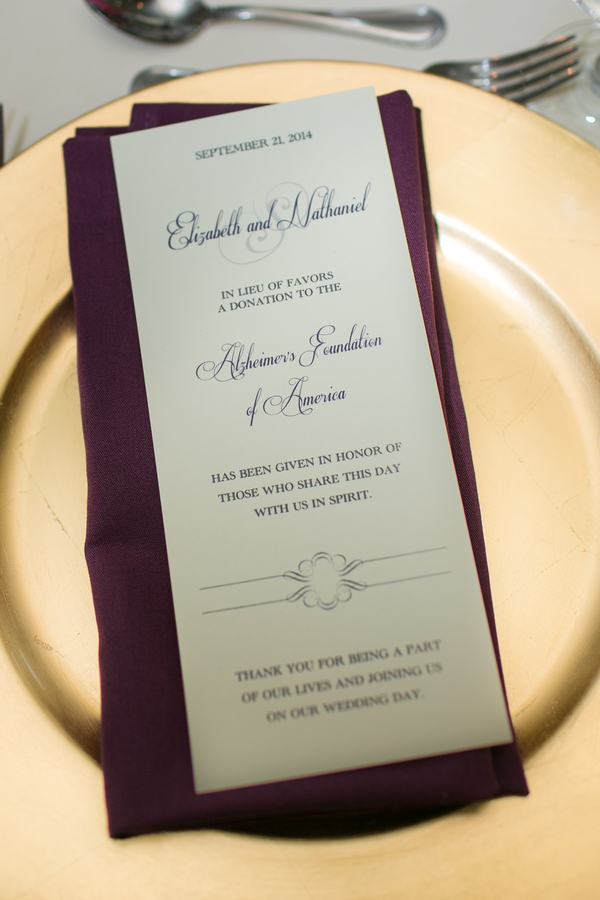 SEPTEMBER 21, 2014
Elizabeth and Nathaniel
IN LIEU OF FAVORS
A DONATION TO THE
Alzheimer's Foundation
of America
HAS BEEN GIVEN IN HONOR OF
THOSE WHO SHARE THIS DAY
WITH US IN SPIRIT.
THANK YOU FOR BEING A PART
OF OUR LIVES AND JOINING US
ON OUR WEDDING DAY.